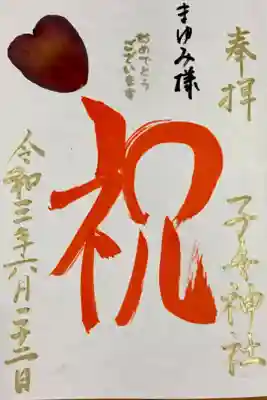 奉拝
子安神社
まゆみ様
おめでとう
ございます
祝
令和三年六月二十二日